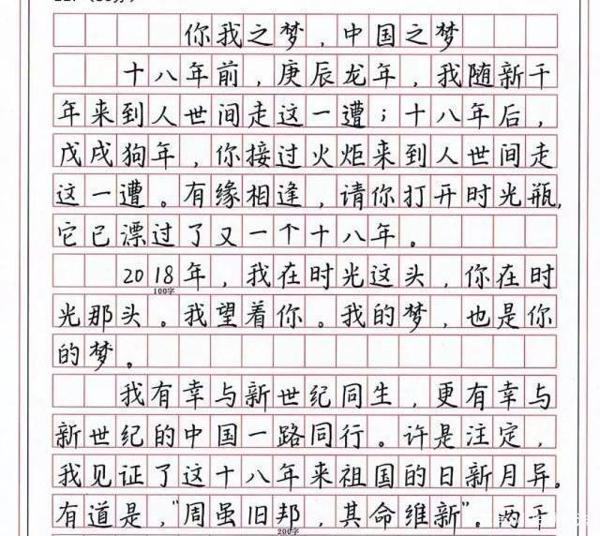 你我之梦，中国之梦
十八年前，庚辰龙年，我随新千
年来到人世间走这一遭；十八年后，
戊戌狗年，你接过火炬来到人世间走
这一遭。有缘相逢，请你打开时光瓶，
它已漂过了又一个十八年。
2018年，我在时光这头，你在时
100字
光那头。我望着你。我的梦，也是你
的梦。
我有幸与新世纪同生，更有幸与
新世纪的中国一路同行。许是注定，
我见证了这十八年来祖国的日新月异。
有道是，“周虽旧邦，其命维新”。两千
200字